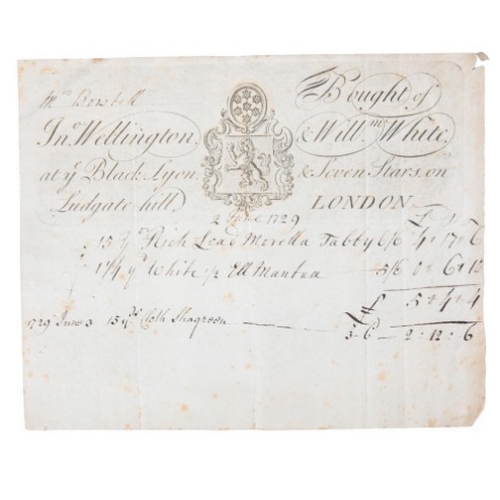 Bought of
Jno. Wellington, & Willm. White,
at ye Black Lyon & Seven Stars, on
Ludgate hill LONDON
2 June 1729
15 yds Rich Lead Morella Tabby 6/6 4 = 17 = 6
1 1/4 yd White 1/2 Ell Mantua 5/6 0 = 6 = 10
5 = 4 = 4
1729 June 3 15 yds Cloth Shagreen 3-6 — 2 = 12 = 6